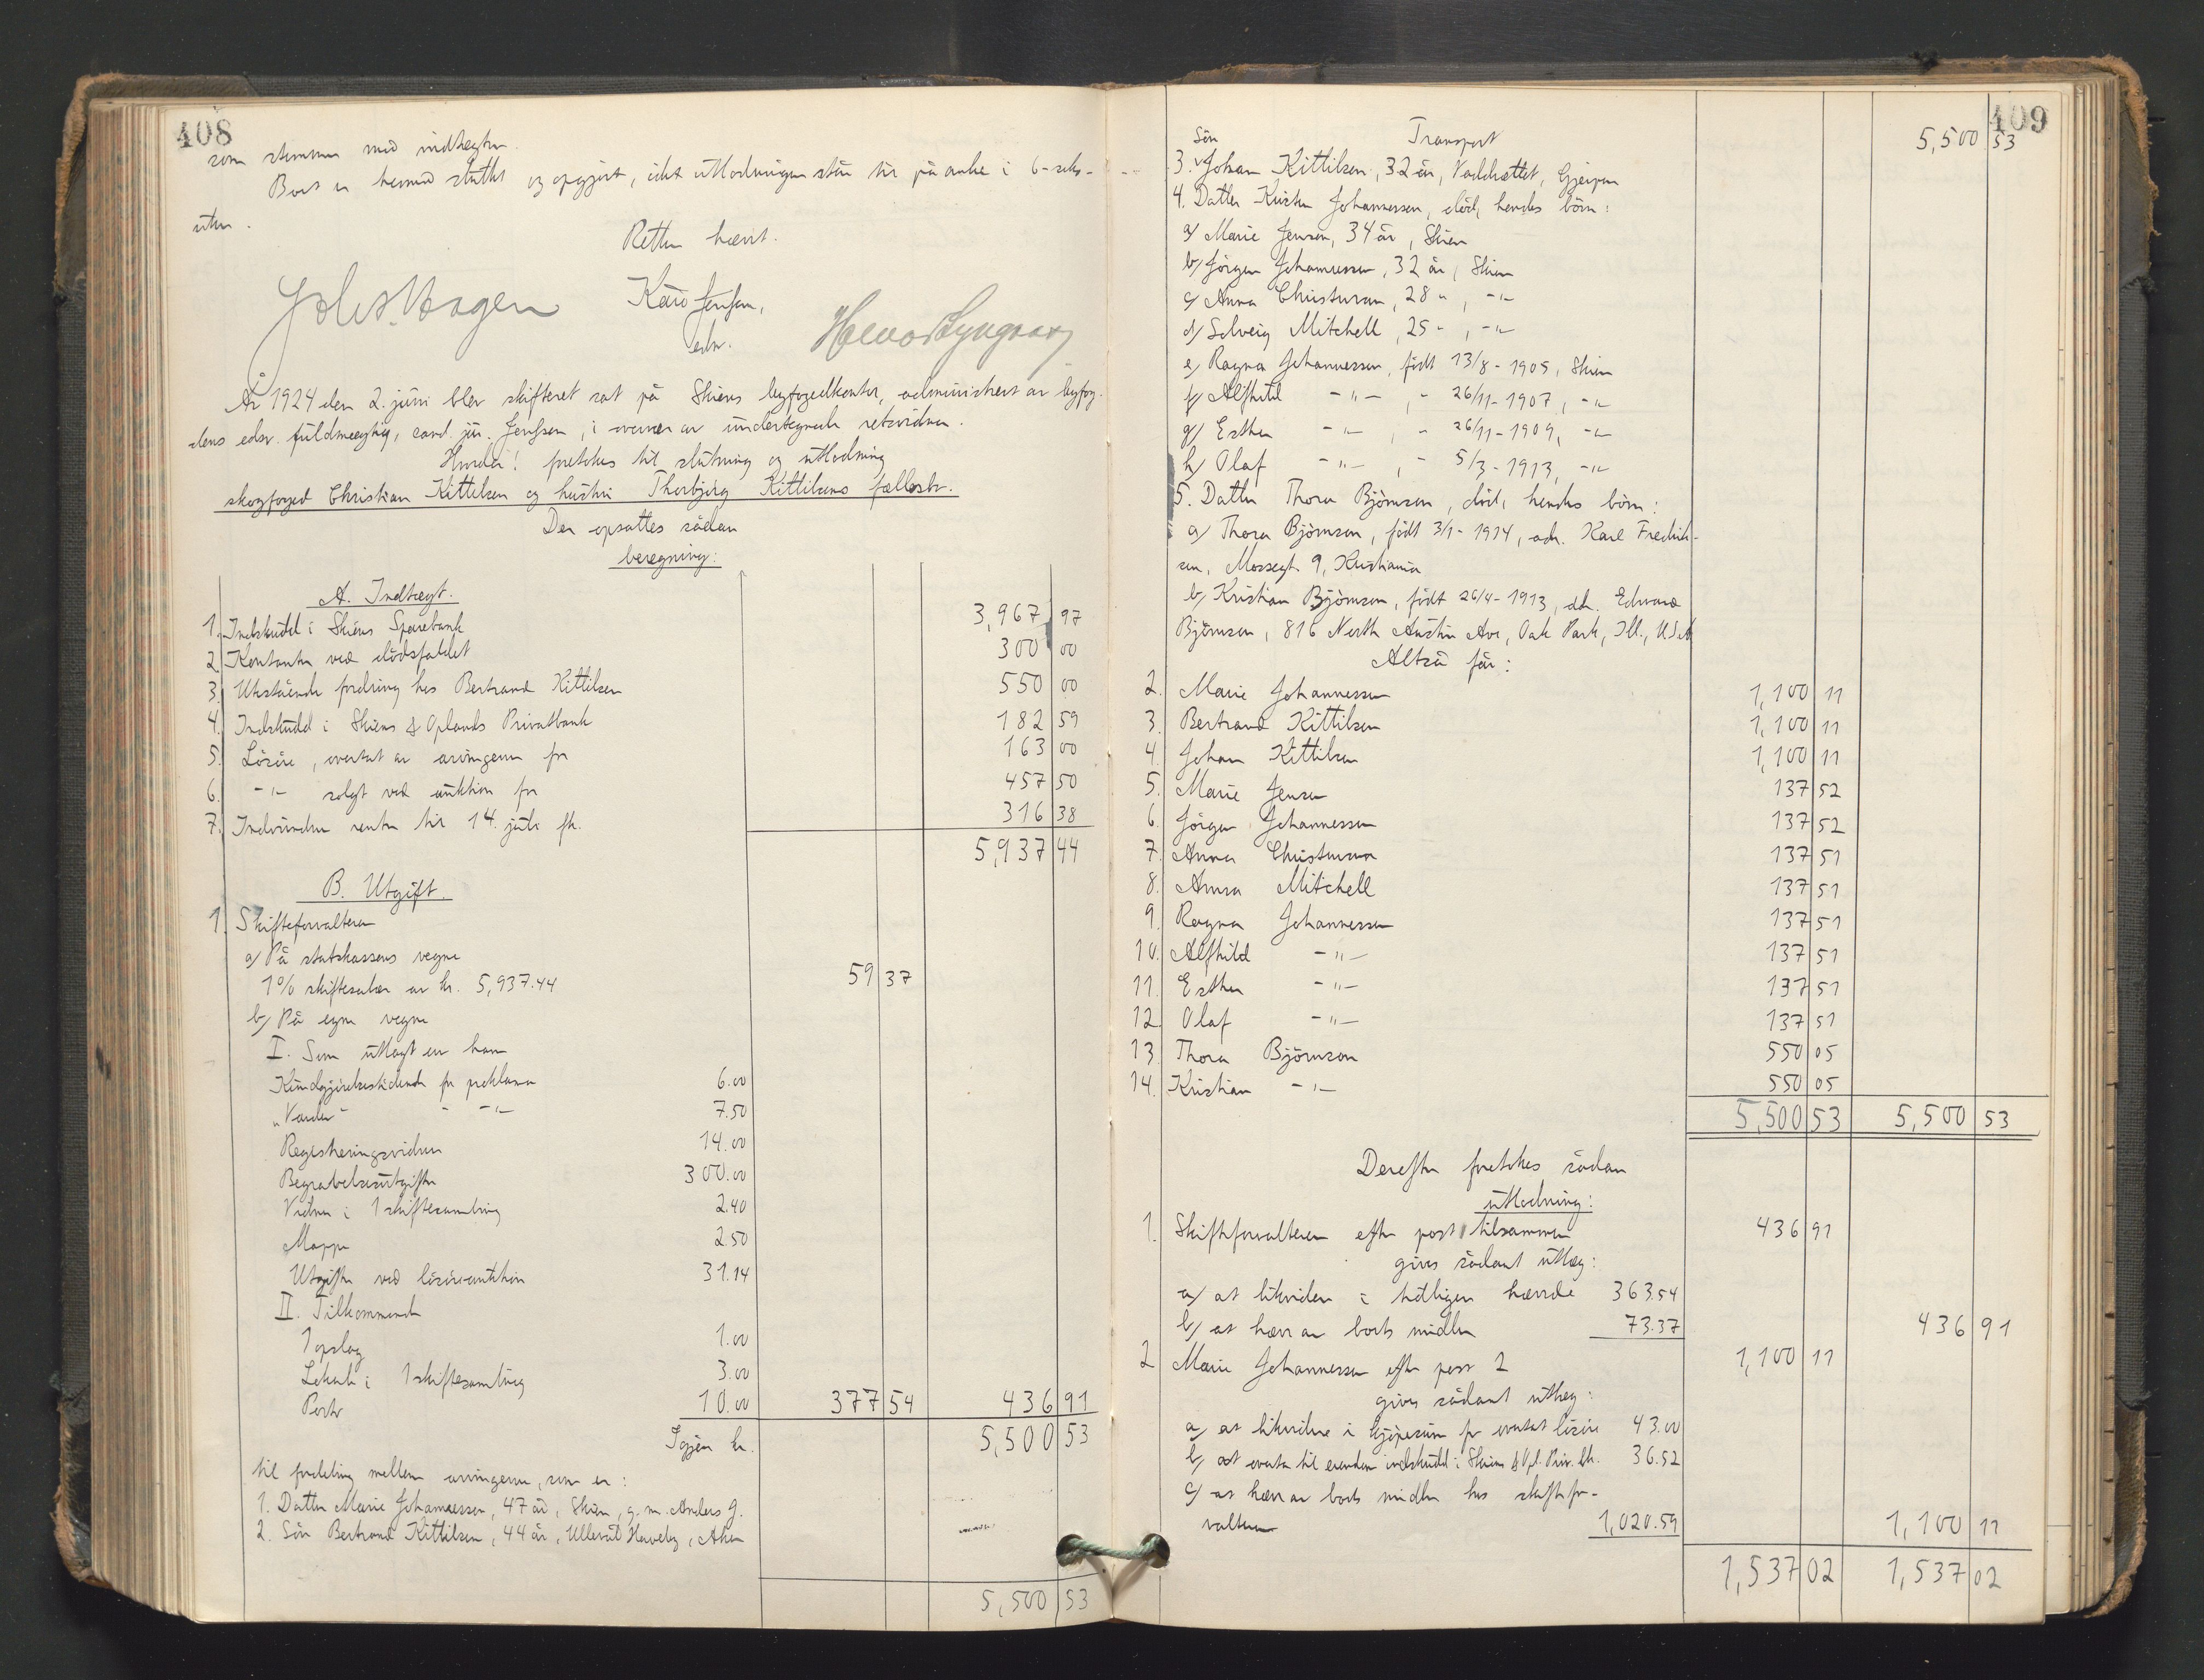 408
som stemmer med indtægten.
Boet er hermed sluttet og opgjort, idet utlodningen står til påanke i 6-seks-
uker.
Retten hævet.
Joh. S. Hagen Kåre Jenssen, Halvor Lyngaas
edsv.
År 1924 den 2. juni blev skifteret sat på Skiens byfogedkontor, administrert av byfog-
dens edsv. fuldmægtig, cand. jur. Jenssen, i overvær av undertegnede retsvidner.
Hvorda! foretokes til slutning og utlodning
skogfoged Christian Kittilsen og hustru Thorbjørg Kittilsens fællesbo.
Der opsattes sådan
beregning:
A. Indtægt.
1. Indskudd i Skiens Sparebank 3,967 97
2. Kontanter ved dødsfaldet 300 00
3. Utestående fordring hos Bertrand Kittilsen 550 00
4. Indskudd i Skiens & Oplands Privatbank 182 59
5. Løsøre, overtat av arvingerne for 163 00
6. -"- solgt ved auktion for 457 50
7. Indvundne renter til 14. juli fk. 316 38
5,937 44
B. Utgift.
1. Skifteforvalteren
a) På statskassens vegne
1% skiftesalær av kr. 5,937.44 59 37
b) På egne vegne
I. Som utlagt av ham
Kundgjørelsestidende for proklama 6.00
"Varden" - -"- 7.50
Registreringsvidner 14.00
Begravelsesutgifter 300.00
Vidner i 1 skiftesamling 2.40
Mappe 2.50
Utgifter ved løsøreauktion 31.14
II. Tilkommende
1 opslag 1.00
Lokale i 1 skiftesamling 3.00
Porto 10.00 377 54 436 91
Igjen kr. 5,500 53
til fordeling mellem arvingerne, som er:
1. Datter Marie Johannessen, 47 år, Skien, g. m. Anders J.
2. Søn Bertrand Kittilsen, 44 år, Ullevål Haveby, Aker
5,500 53
409
Transport 5,500 53
Søn
3. Johan Kittilsen, 32 år, Vaddrættet, Gjerpen
4. Datter Kirsten Johannessen, død, hendes børn:
a) Marie Jensen, 34 år, Skien
b) Jørgen Johannessen, 32 år, Skien
c) Anna Christensen, 28 ", -"-
d) Solveig Mitchell, 25 -, -"-
e) Ragna Johannessen, født 13/8-1905, Skien
f) Alfhild -"-, - 26/11-1907, -"-
g) Esther -"-, - 26/11-1909, -"-
h) Olaf -"-, - 5/3-1913, -"-
5. Datter Thora Bjørnsen, død, hendes børn:
a) Thora Bjørnsen, født 3/1-1914, adr. Karl Fredrik-
sen, Mossegt. 9, Kristiania
b) Kristian Bjørnsen, født 26/4-1913, adr. Edward
Bjørnsen, 816 North Austin Ave, Oak Park, Ill., USA
Altså får:
2. Marie Johannessen 1,100 11
3. Bertrand Kittilsen 1,100 11
4. Johan Kittilsen 1,100 11
5. Marie Jensen 137 52
6. Jørgen Johannessen 137 52
7. Anna Christensen 137 51
8. Anna Mitchell 137 51
9. Ragna Johannessen 137 51
10. Alfhild -"- 137 51
11. Esther -"- 137 51
12. Olaf -"- 137 51
13. Thora Bjørnsen 550 05
14. Kristian -"- 550 05
5,500 53 5,500 53
Derefter foretokes sådan
utlodning:
1. Skifteforvalteren efter post 1 tilsammen 436 91
gives sådant utlæg:
a) at likvidere i tidligere hævede 363.54
b) at hæve av boets midler 73.37 436 91
2 Marie Johannessen efter post 2 1,100 11
gives sådant utlæg:
a) at likvidere i kjøpesum for overtat løsøre 43.00
b) at overta til eiendom indskudd i Skiens & Opl. Priv. bk. 36.52
c) at hæve av boets midler hos skiftefor-
valteren 1,020.59 1,100 11
1,537 02 1,537 02